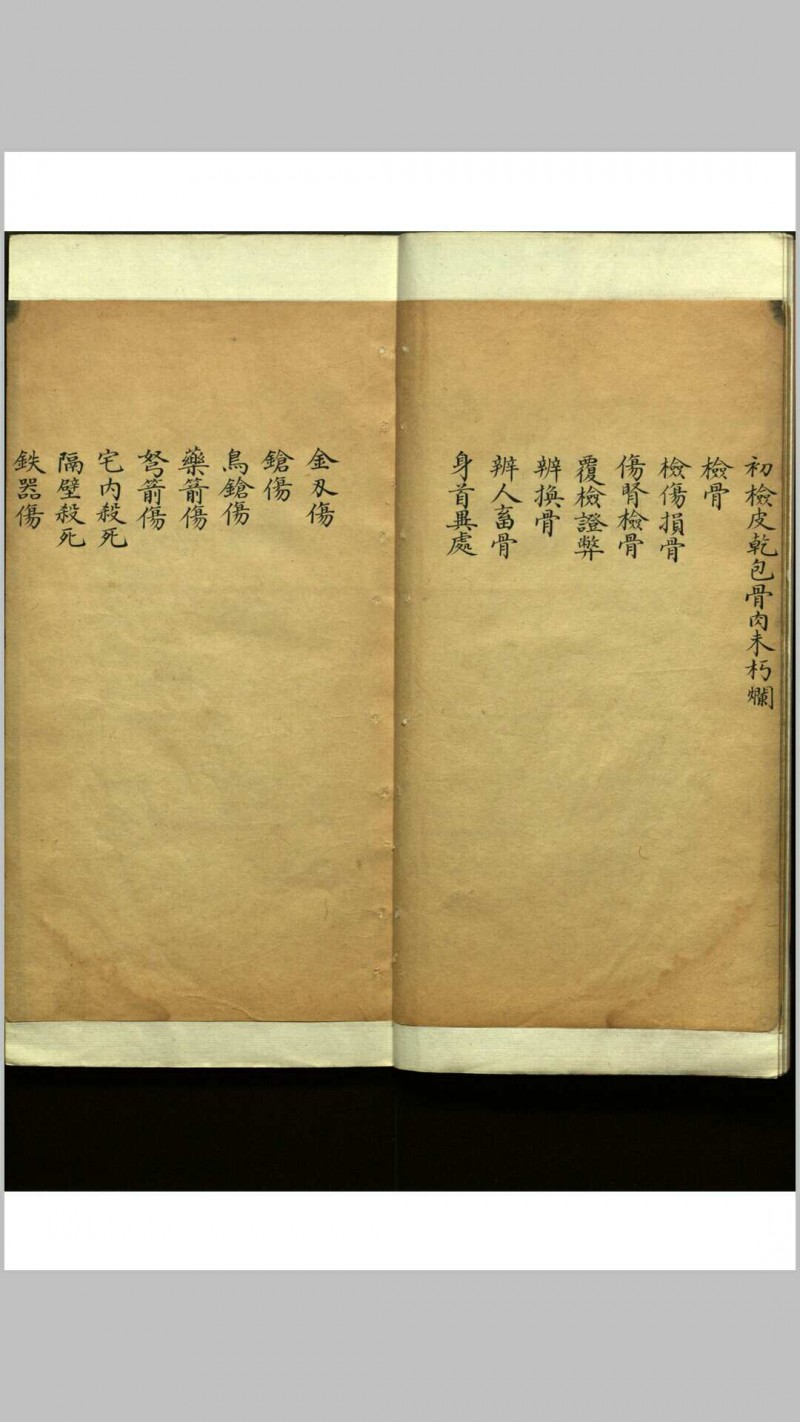 初檢皮乾包骨肉未朽爛
檢骨
檢傷損骨
傷腎檢骨
覆檢證弊
辨換骨
辨人畜骨
身首異處
金刃傷
鎗傷
鳥鎗傷
藥箭傷
弩箭傷
宅內殺死
隔壁殺死
鉄器傷